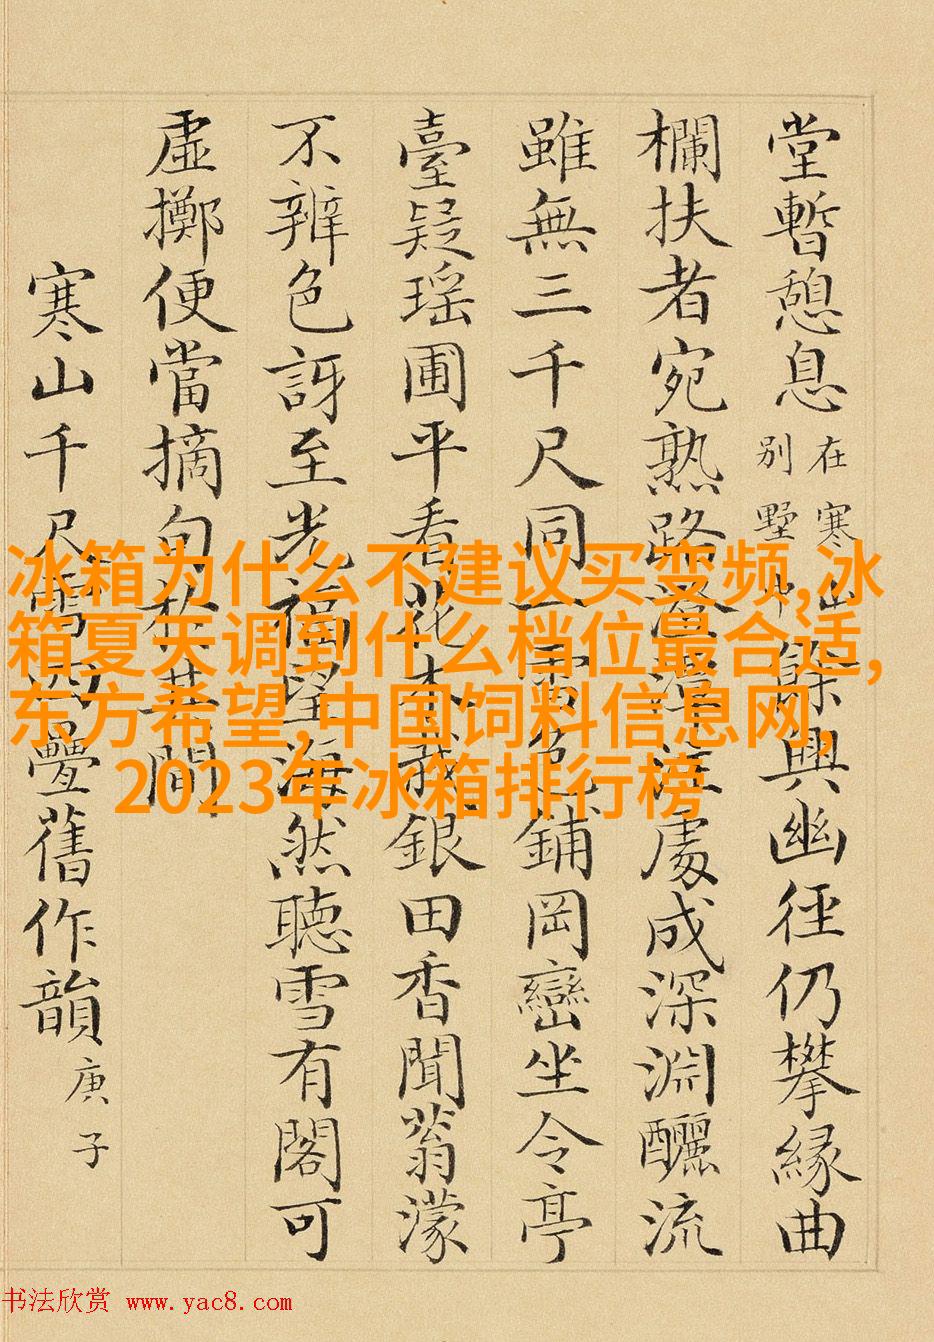 堂暫憩息在寒山別墅中餘興幽徑仍攀緣曲
欄扶者宛熟路處成深淵釃流
雖無三千尺同一色鋪岡巒坐令亭
臺疑瑤圃平看花木銀田香聞蓊濛
不辨色訝至光福望海然聽雪有閣可
虛擲便當摘句於其間
寒山千尺雪疊舊作韻庚子
冰箱为什么不建议买变频,冰
箱夏天调到什么档位最合适,
东方希望,中国饲料信息网,
2023年冰箱排行榜
书法欣赏 www.yac8.com